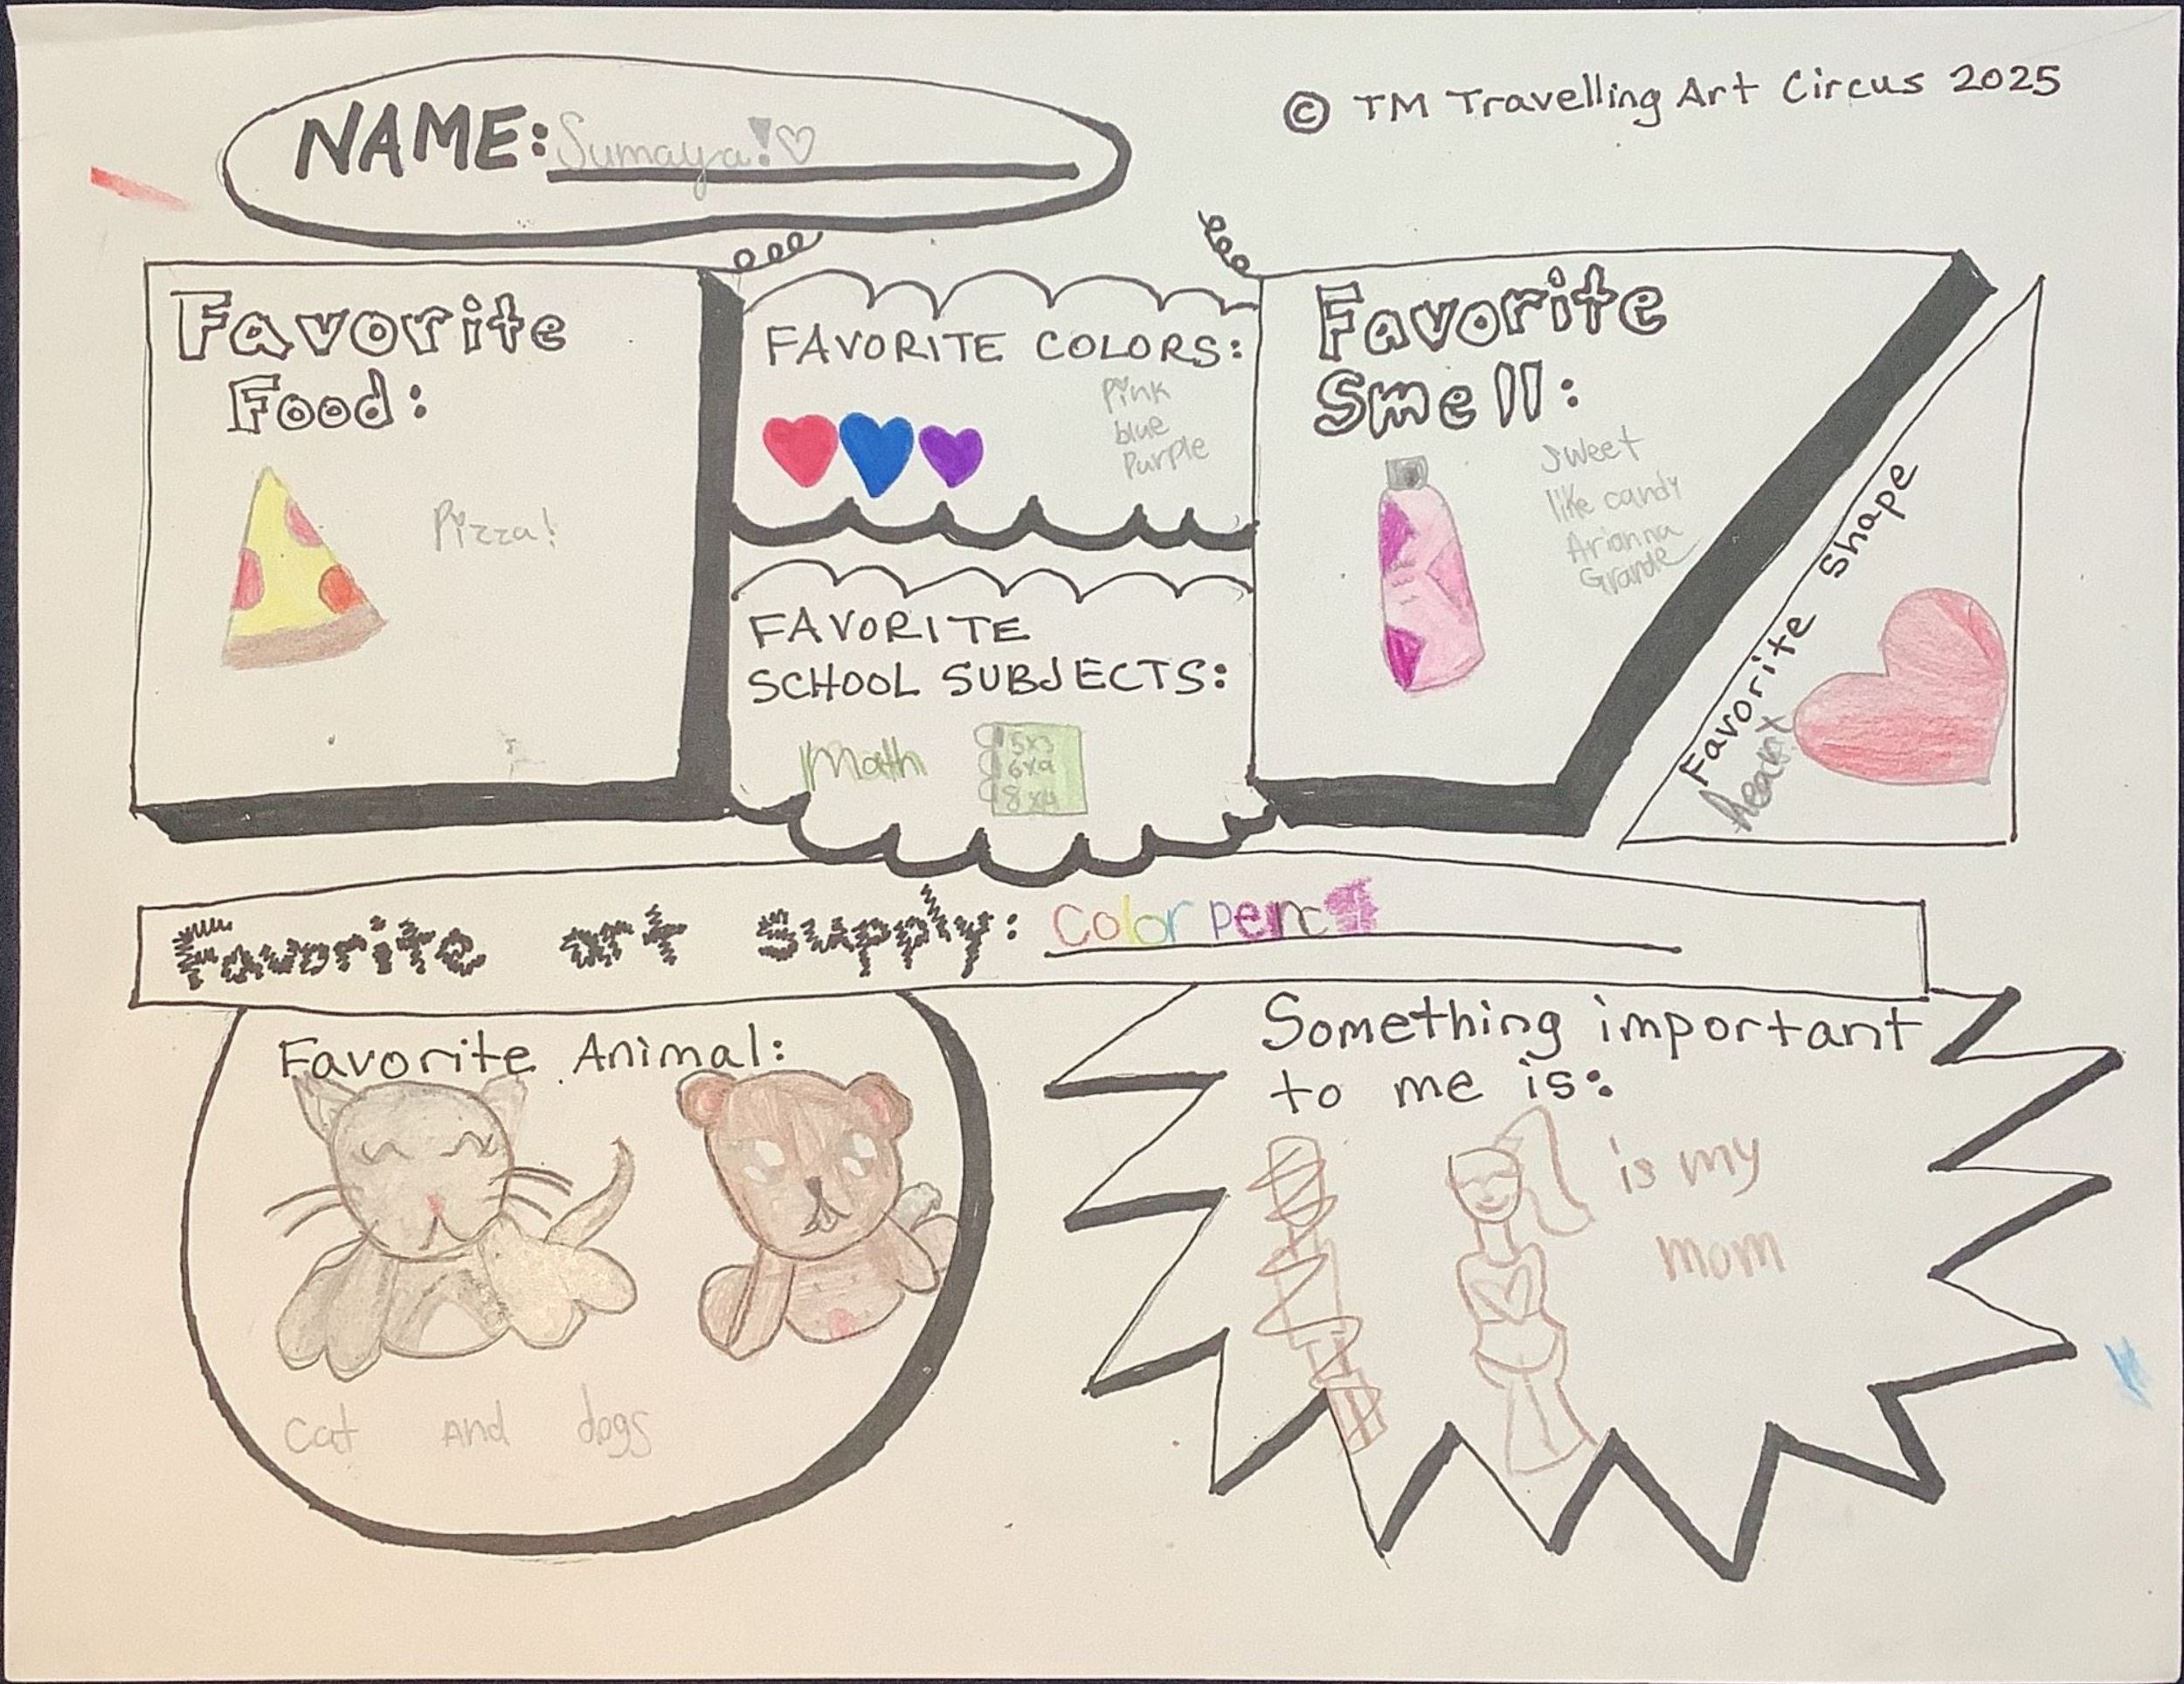 NAME: Sumaya!♡
© TM Travelling Art Circus 2025
Favorite
Food:
Pizza!
FAVORITE COLORS:
Pink
blue
Purple
FAVORITE
SCHOOL SUBJECTS:
Math
5x3
6x9
8x4
Favorite
Smell:
Sweet
like candy
Arianna
Grande
Favorite Shape
heart
Favorite art supply: Color penc
Favorite Animal:
cat and dogs
Something important
to me is:
is my
mom